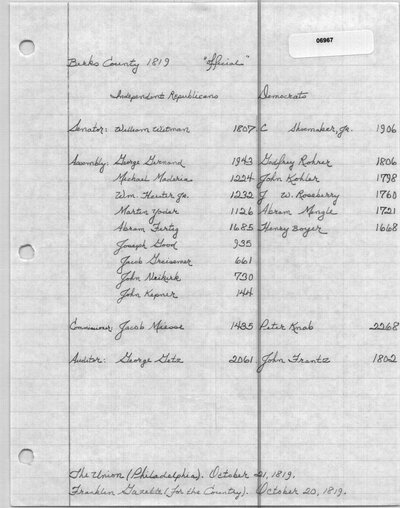 06967
Berks County 1819 "official"
Independent Republicans Democrats
Senator: William Witman 1807 C Shoemaker, Jr. 1906
Assembly: George Gernand 1943 Godfrey Rohrer 1806
Michael Maderia 1224 John Kohler 1798
Wm. Heister Jr. 1232 J W. Roseberry 1760
Martin Yoder 1126 Abram Mengle 1721
Abram Fertig 1685 Henry Boyer 1668
Joseph Good 935
Jacob Greissemer 661
John Neikirk 730
John Kepner 144
Commissioner: Jacob Miesse 1435 Peter Knab 2268
Auditor: George Getz 2061 John Frantz 1802
The Union (Philadelphia). October 21, 1819.
Franklin Gazette (for the Country). October 20, 1819.